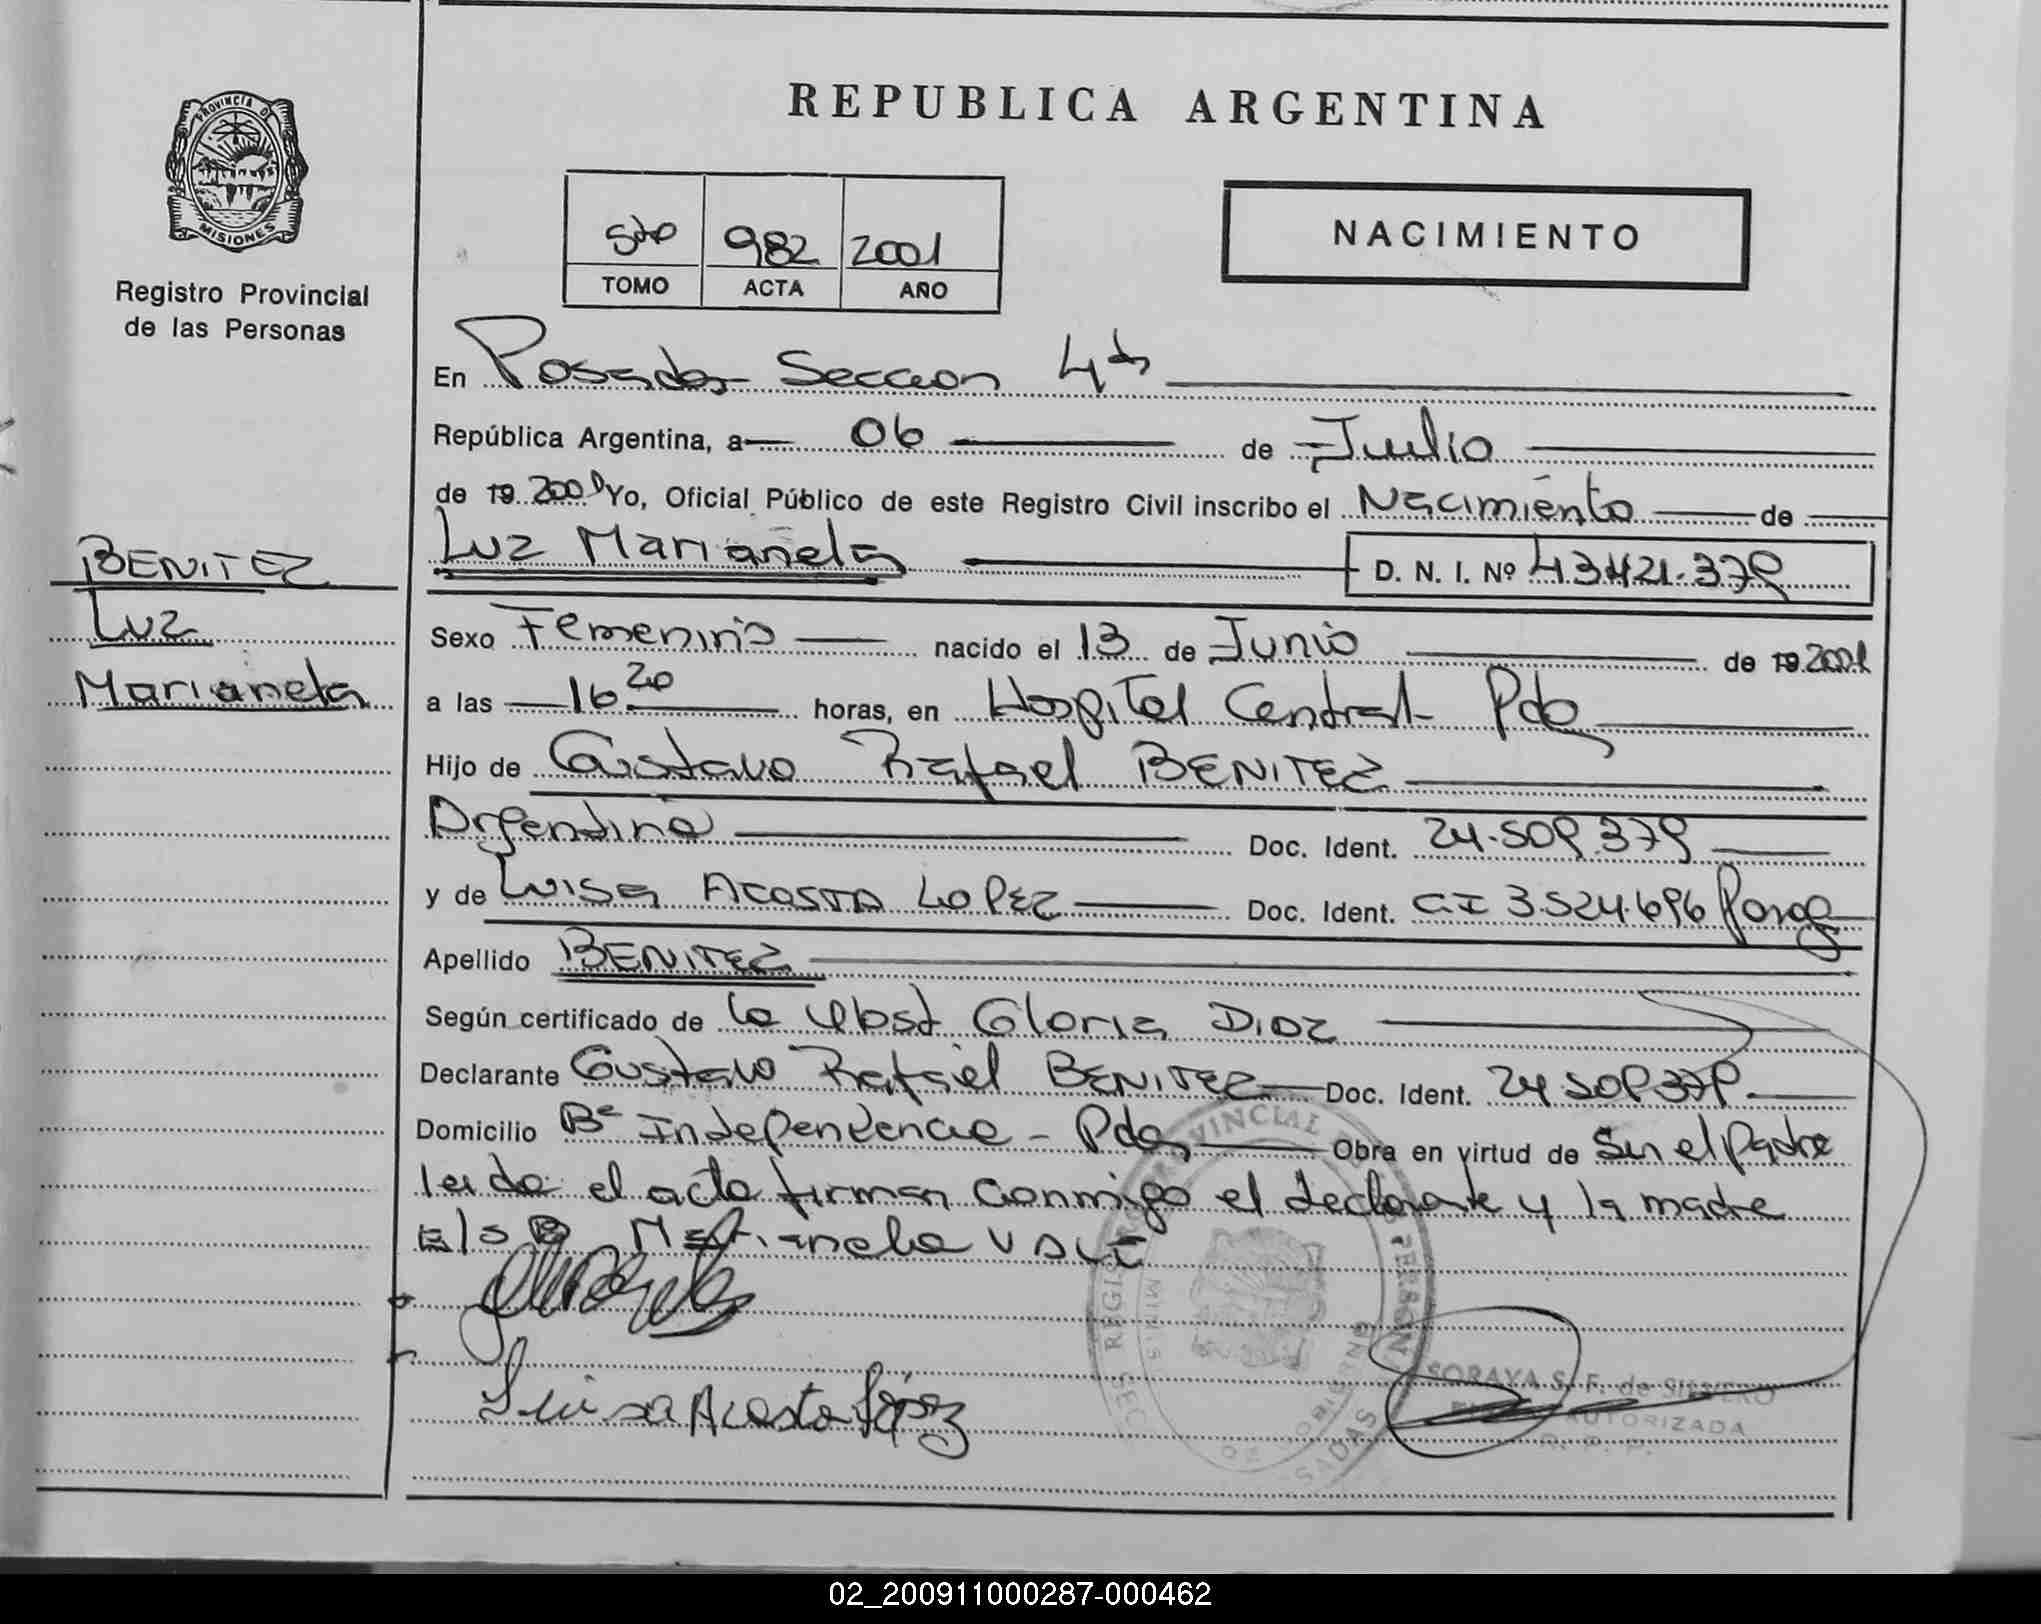 REPUBLICA ARGENTINA
PROVINCIA DE
MISIONES
Registro Provincial
de las Personas
5to 982 2001
TOMO ACTA AÑO
NACIMIENTO
En Posadas Seccion 4ta
República Argentina, a 06 de Julio
de 19 2001 Yo, Oficial Público de este Registro Civil inscribo el Nacimiento de
Luz Marianela D. N. I. Nº 43.421.379
BENITEZ
Luz
Marianela
Sexo Femenino nacido el 13 de Junio de 19 2001
a las 16 20 horas, en Hospital Central Pdas
Hijo de Gustavo Rafael BENITEZ
Argentino Doc. Ident. 24.509.379
y de Luisa ACOSTA LOPEZ Doc. Ident. CI 3.524.696 Parag
Apellido BENITEZ
Según certificado de la Obst Gloria Diaz
Declarante Gustavo Rafael BENITEZ Doc. Ident. 24 509 379
Domicilio Bº Independencia - Pdas Obra en virtud de Ser el Padre
leida el acta firman conmigo el declarante y la madre
Marianela VALE
Luisa Acosta López
SORAYA S. F. de
AUTORIZADA
R. P. P.
02_200911000287-000462